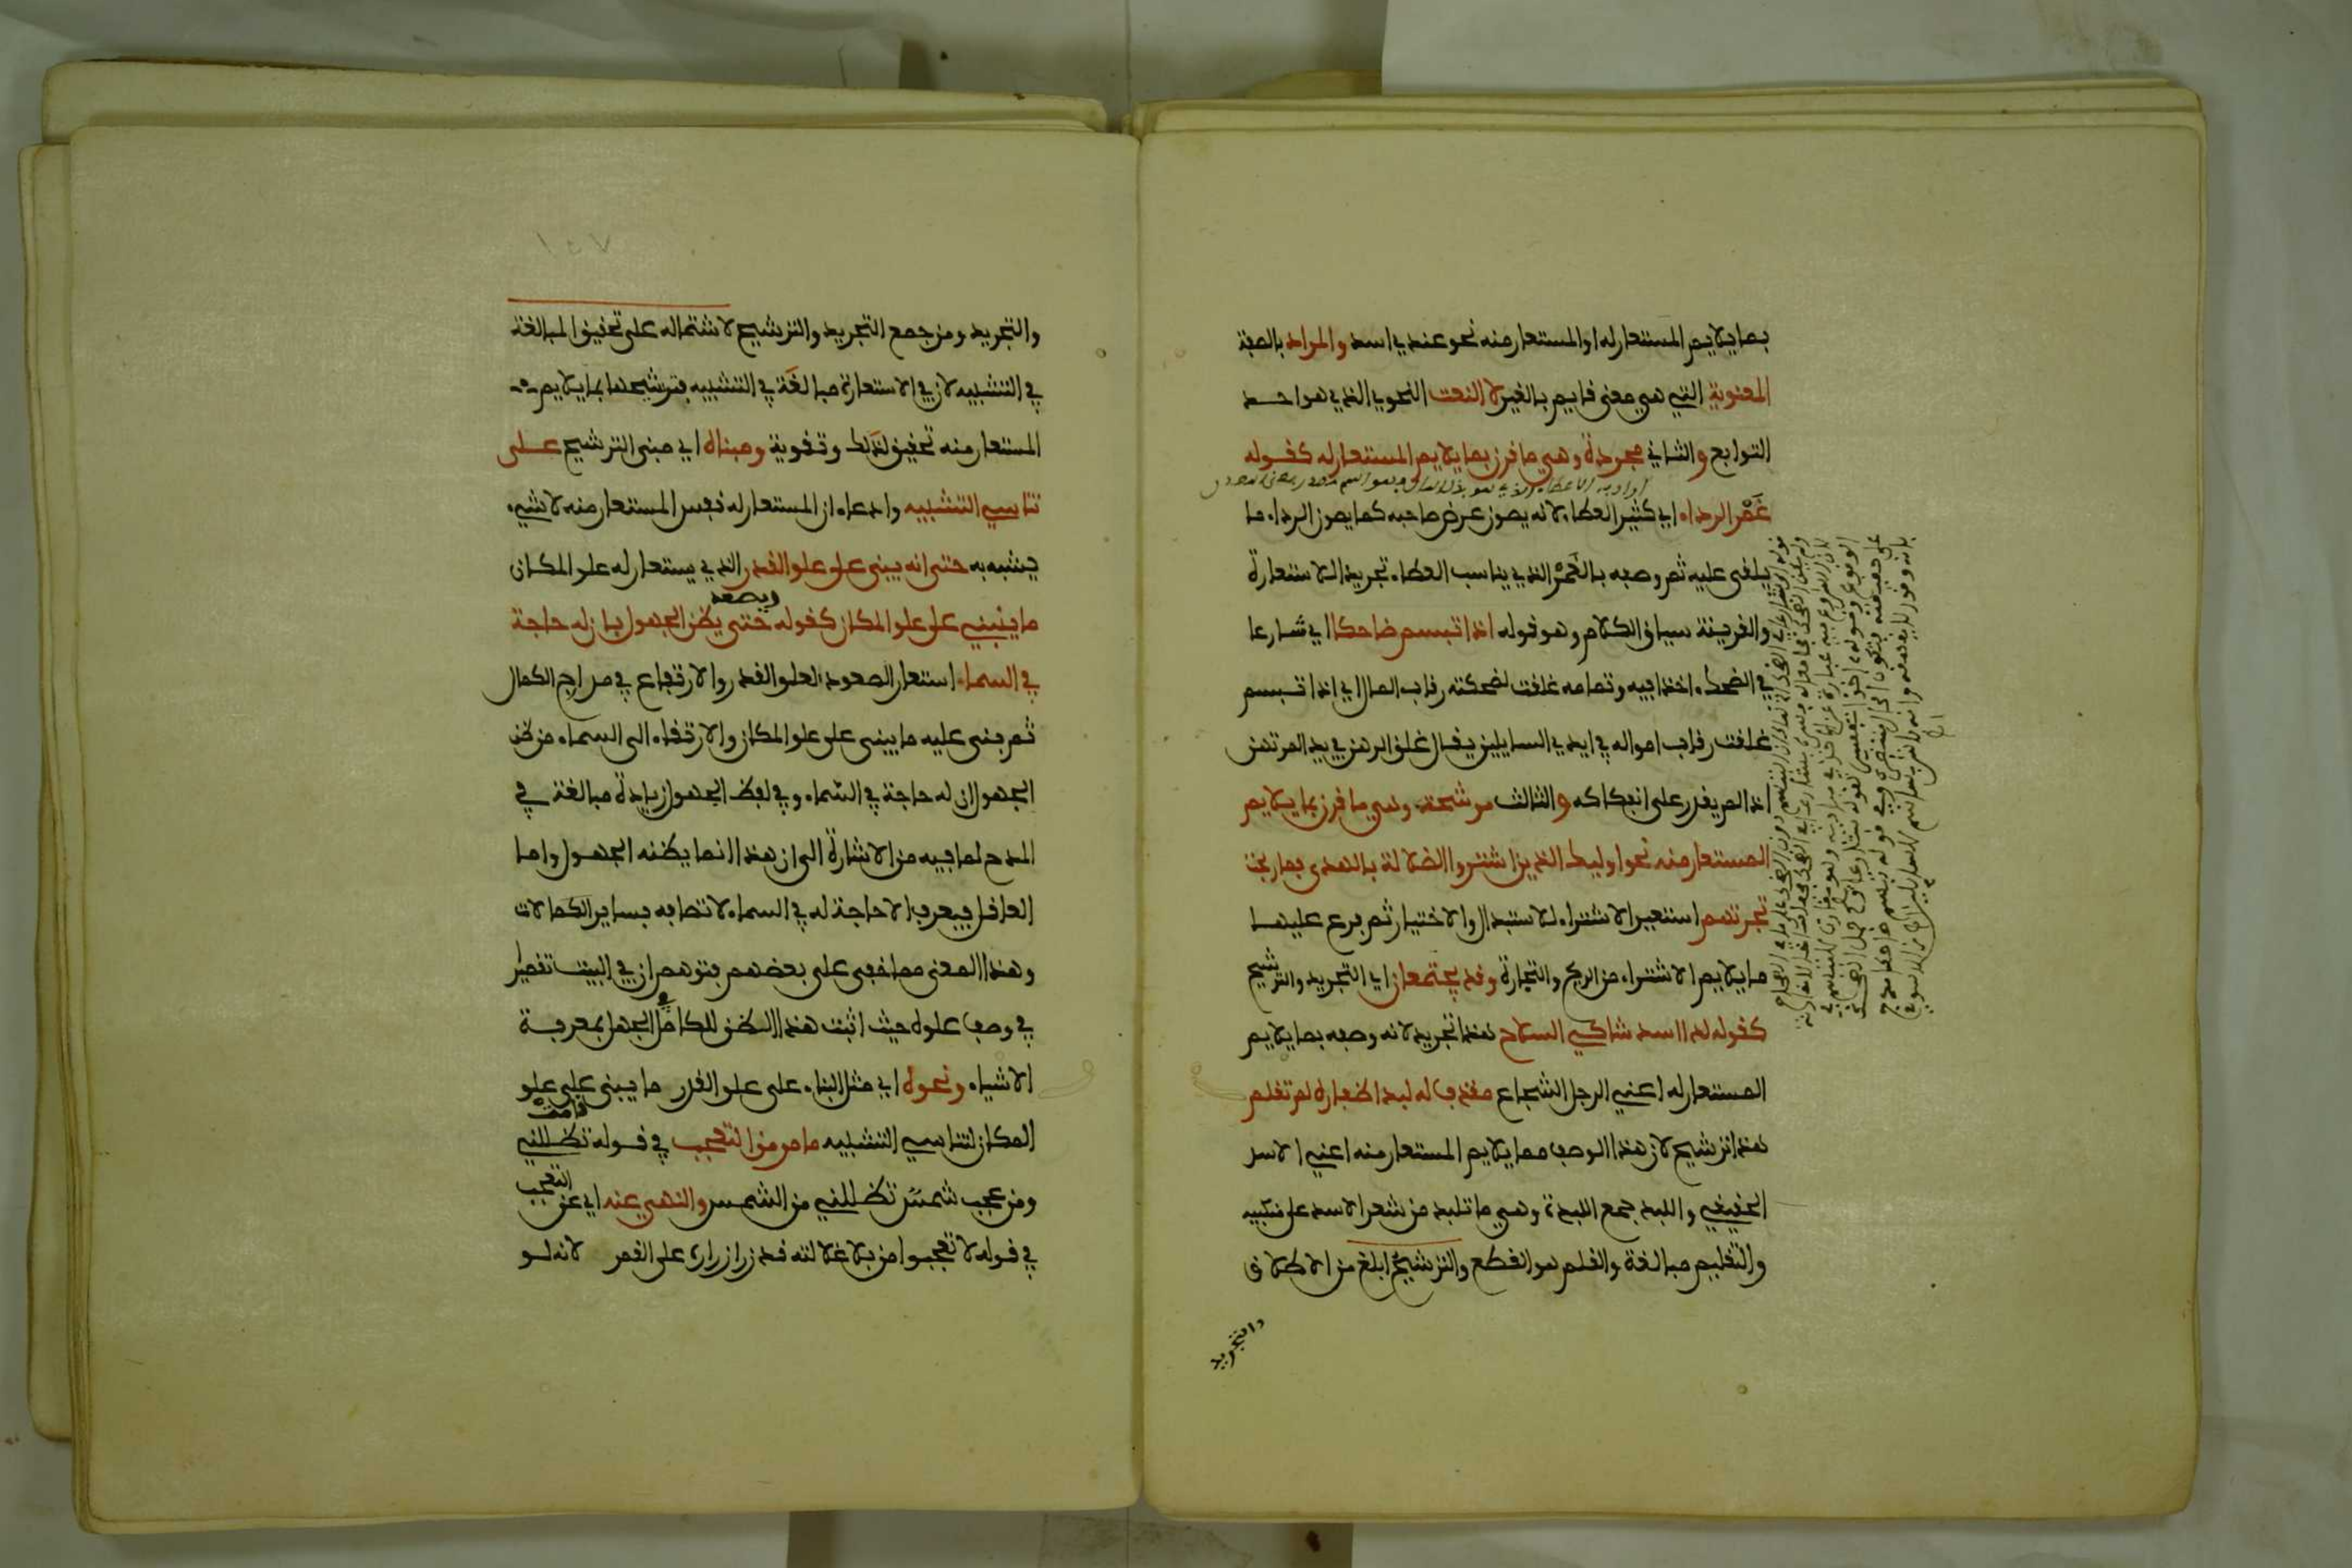 بما يلايم المستعار له او المستعار منه نحو عندي اسد والمراد بالصفة
المعنوية التي هي معنى قايم بالغير لا النعت النحوي الذي هو احد
التوابع والثاني مجردة وهي ما قرن بما يلايم المستعار له كقوله
غَمْر الرداء اي كثير العطاء لانه يصون عرض صاحبه كما يصون الرداء ما
يلقى عليه ثم وصفه بالغَمْر الذي يناسب العطاء تجريدا للاستعارة
والقرينة سياق الكلام وهو قوله اذا تبسم ضاحكا اي شارعا
في الضحك اخذا فيه وتمامه غلقت لضحكته رقاب المال اي اذا تبسم
غلقت رقاب امواله في ايدي السايلين يقال غلق الرهن في يد المرتهن
اذا لم يقدر على انفكاكه والثالث مرشحة وهي ما قرن بما يلايم
المستعار منه نحو اوليك الذين اشتروا الضلالة بالهدى فما ربحت
تجرتهم استعير الاشتراء للاستبدال والاختيار ثم فرع عليها
ما يلايم الاشتراء من الربح والتجارة وقد يجتمعان اي التجريد والترشيح
كقوله لدا اسد شاكي السلاح هذا تجريد لانه وصفه بما يلايم
المستعار له اعني الرجل الشجاع مقذف له لبد اظفاره لم تقلم
هذا ترشيح لان هذا الوصف مما يلايم المستعار منه اعني الاسد
الحقيقي واللبد جمع اللبدة وهي ما تلبد من شعر الاسد على منكبيه
والتقليم مبالغة والقلم هو القطع والترشيح ابلغ من الاطلاق
والتجريد
١٥٧
والتجريد ومن جمع التجريد والترشيح لاشتماله على تحقيق المبالغة
في التشبيه لان في الاستعارة مبالغة في التشبيه فترشيحها بما يلايم
المستعار منه تحقيق لذلك وتقوية ومبناه اي مبنى الترشيح على
تناسي التشبيه وادعاء ان المستعار له نفس المستعار منه لا شيء
يشبه به حتى انه يبنى على علو القدر الذي يستعار له علو المكان
ما يبنى على علو المكان كقوله ويصعد حتى يظن الجهول بان له حاجة
في السماء استعار الصعود لعلو القدر والارتفاع في مدارج الكمال
ثم بنى عليه ما يبنى على علو المكان والارتقاء الى السماء من ظن
الجهول ان له حاجة في السّماء وفي لفظ الجهول زيادة مبالغة في
المدح لما فيه من الاشارة الى ان هذا انما يظنه الجهول واما
العاقل فيعرف الا حاجة له في السماء لاتصافه بساير الكمالات
وهذا المعنى مما خفى على بعضهم فتوهم ان في البيت تقصير
في وصف علوه حيث اثبت هذا الظن للكامل في الجهل بمعرفة
الاشياء ونحوه اي مثل البناء على علو القدر ما يبنى على علو
المكان لتناسي التشبيه ما مر من التعجب في قوله قامت تظللني
ومن عجب شمس تظللني من الشمس والنهي عنه اي عن التعجب
في قوله لا تعجبوا من بلا غلالته قد زر ازراره على القمر لانه لو